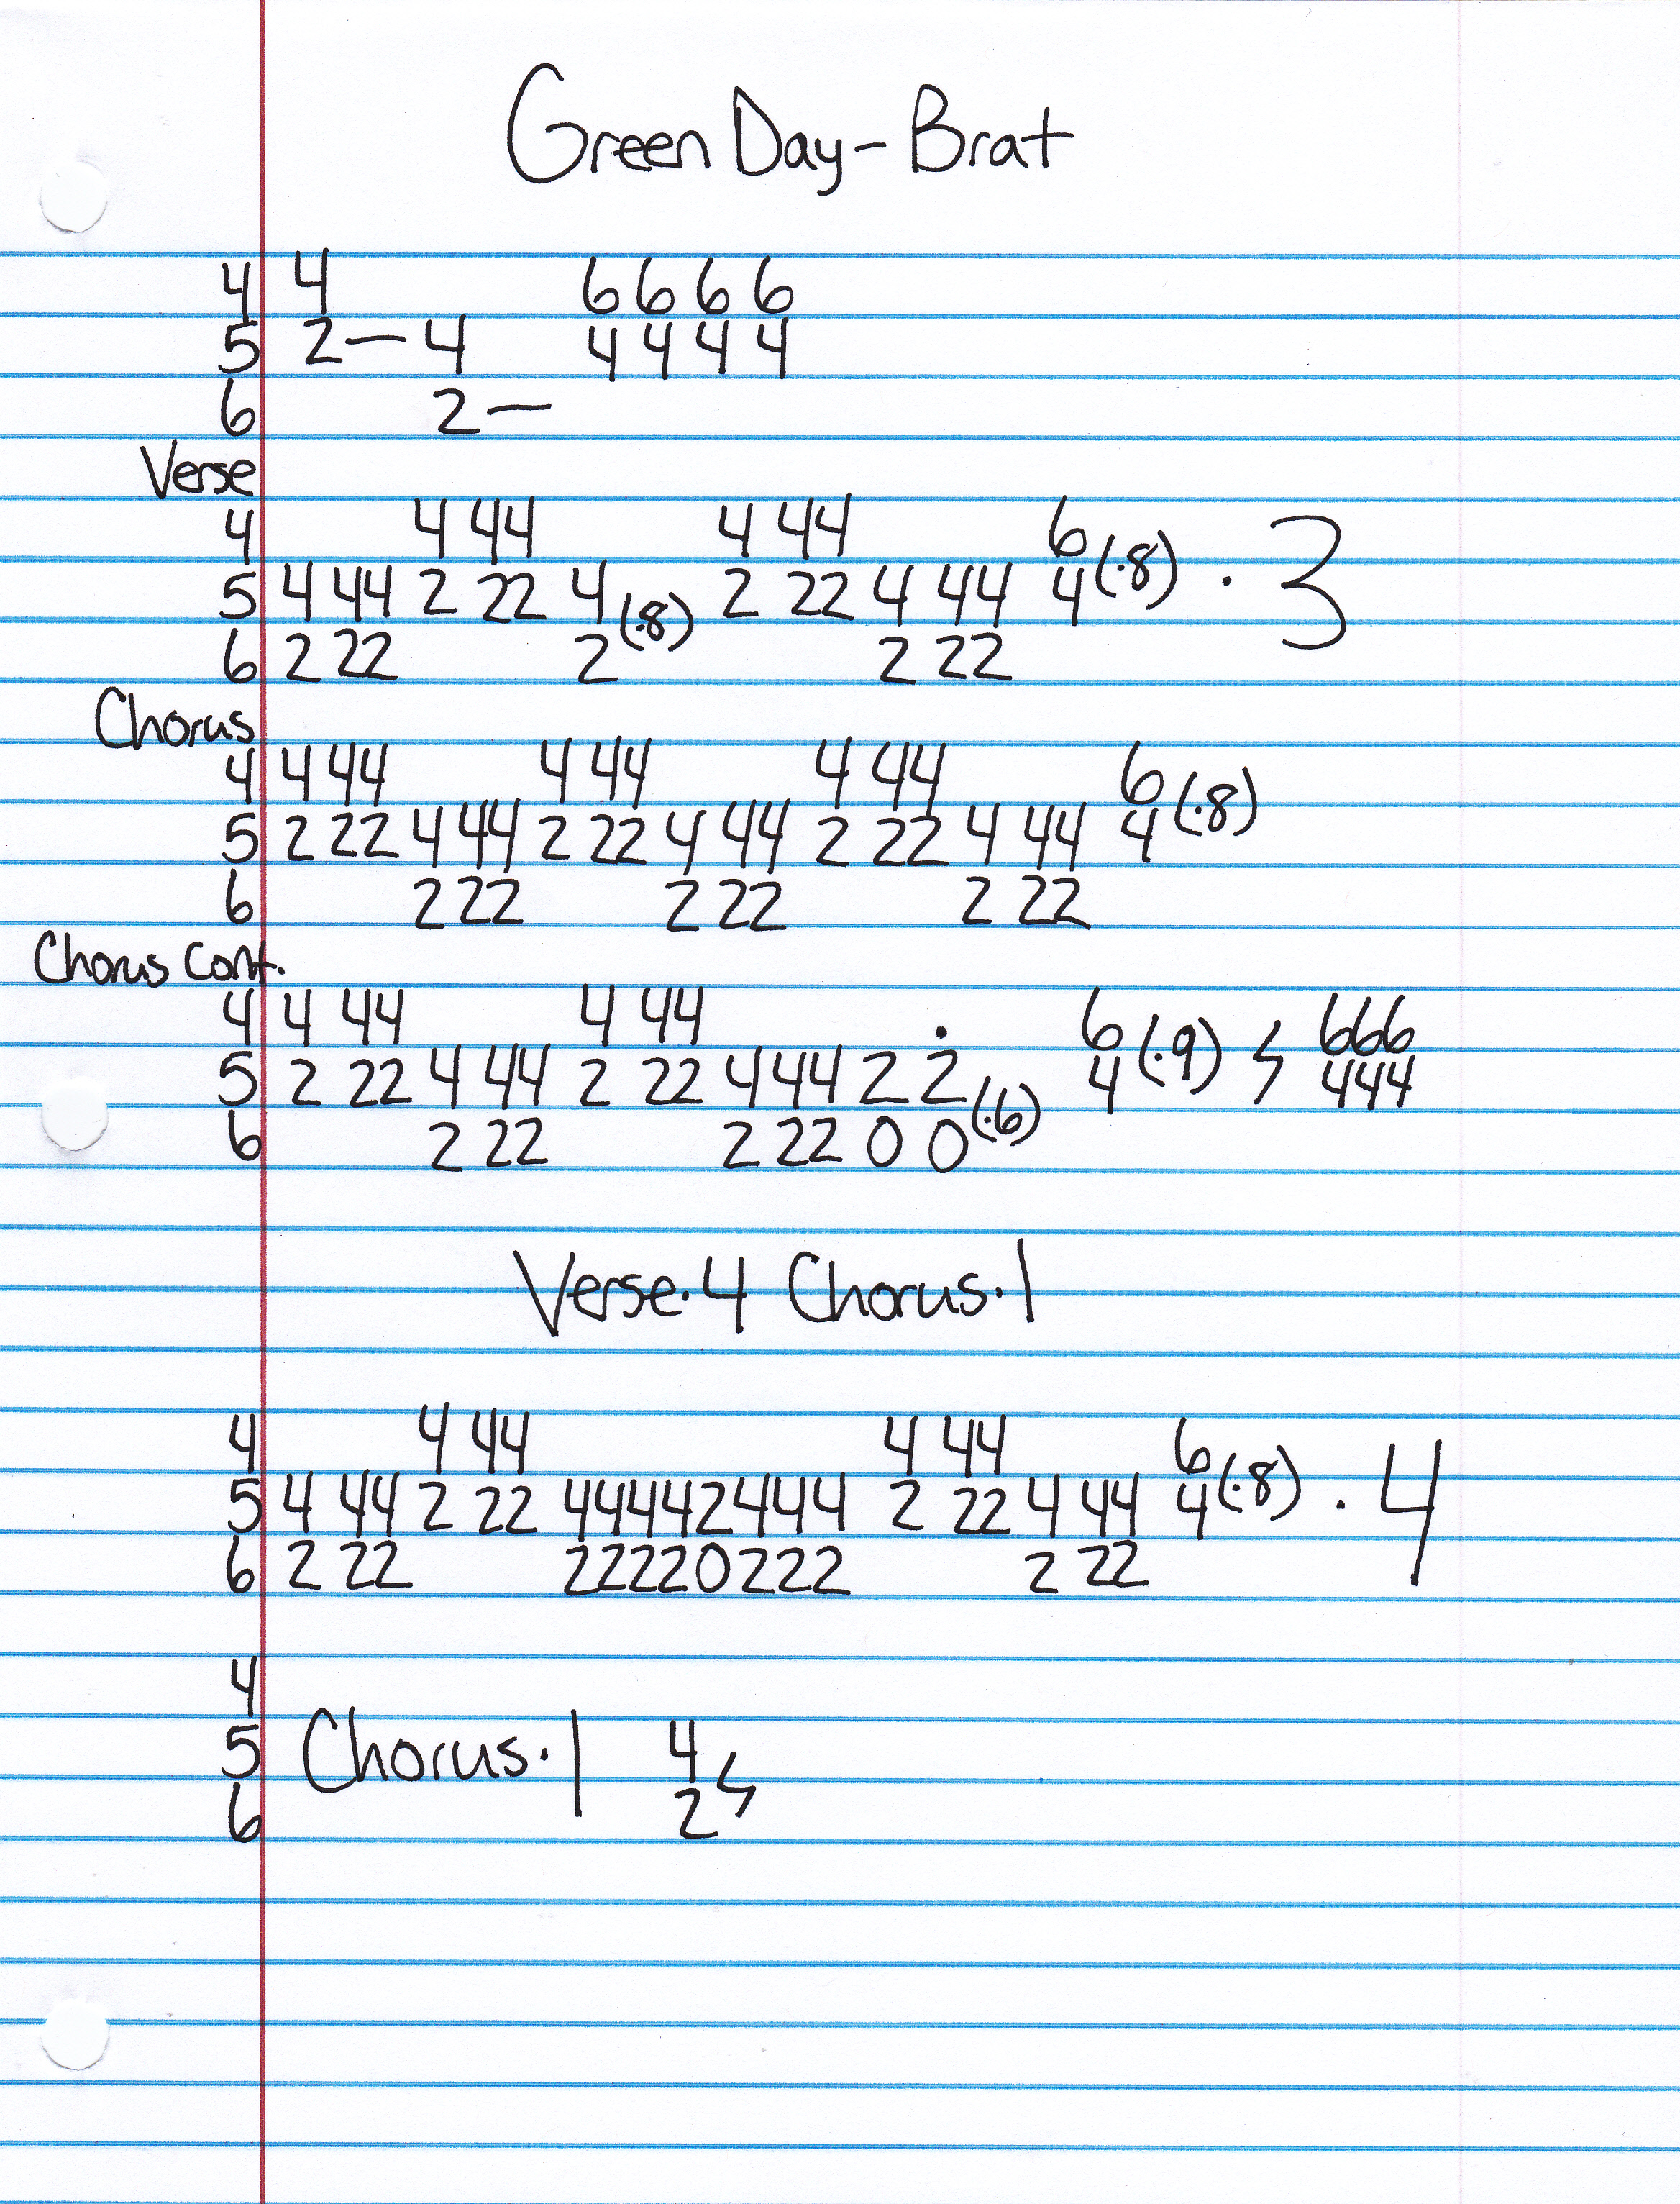 Green Day - Brat
4 4 6 6 6 6
5 2 — 4 4 4 4 4
6 2 —
Verse
4 4 44 4 44 6
5 4 44 2 22 4 (·8) 2 22 4 44 4 (·8) · 3
6 2 22 2 2 22
Chorus
4 4 44 4 44 4 44 6
5 2 22 4 44 2 22 4 44 2 22 4 44 4 (·8)
6 2 22 2 22 2 22
Chorus Cont.
4 4 44 4 44 6 666
5 2 22 4 44 2 22 4 44 2 · 2 4 (·9) 444
6 2 22 2 22 0 0 (·6)
Verse·4 Chorus·1
4 4 44 4 44 6
5 4 44 2 22 44442444 2 22 4 44 4 (·8) · 4
6 2 22 22220222 2 22
4
5 Chorus·1 4
6 2